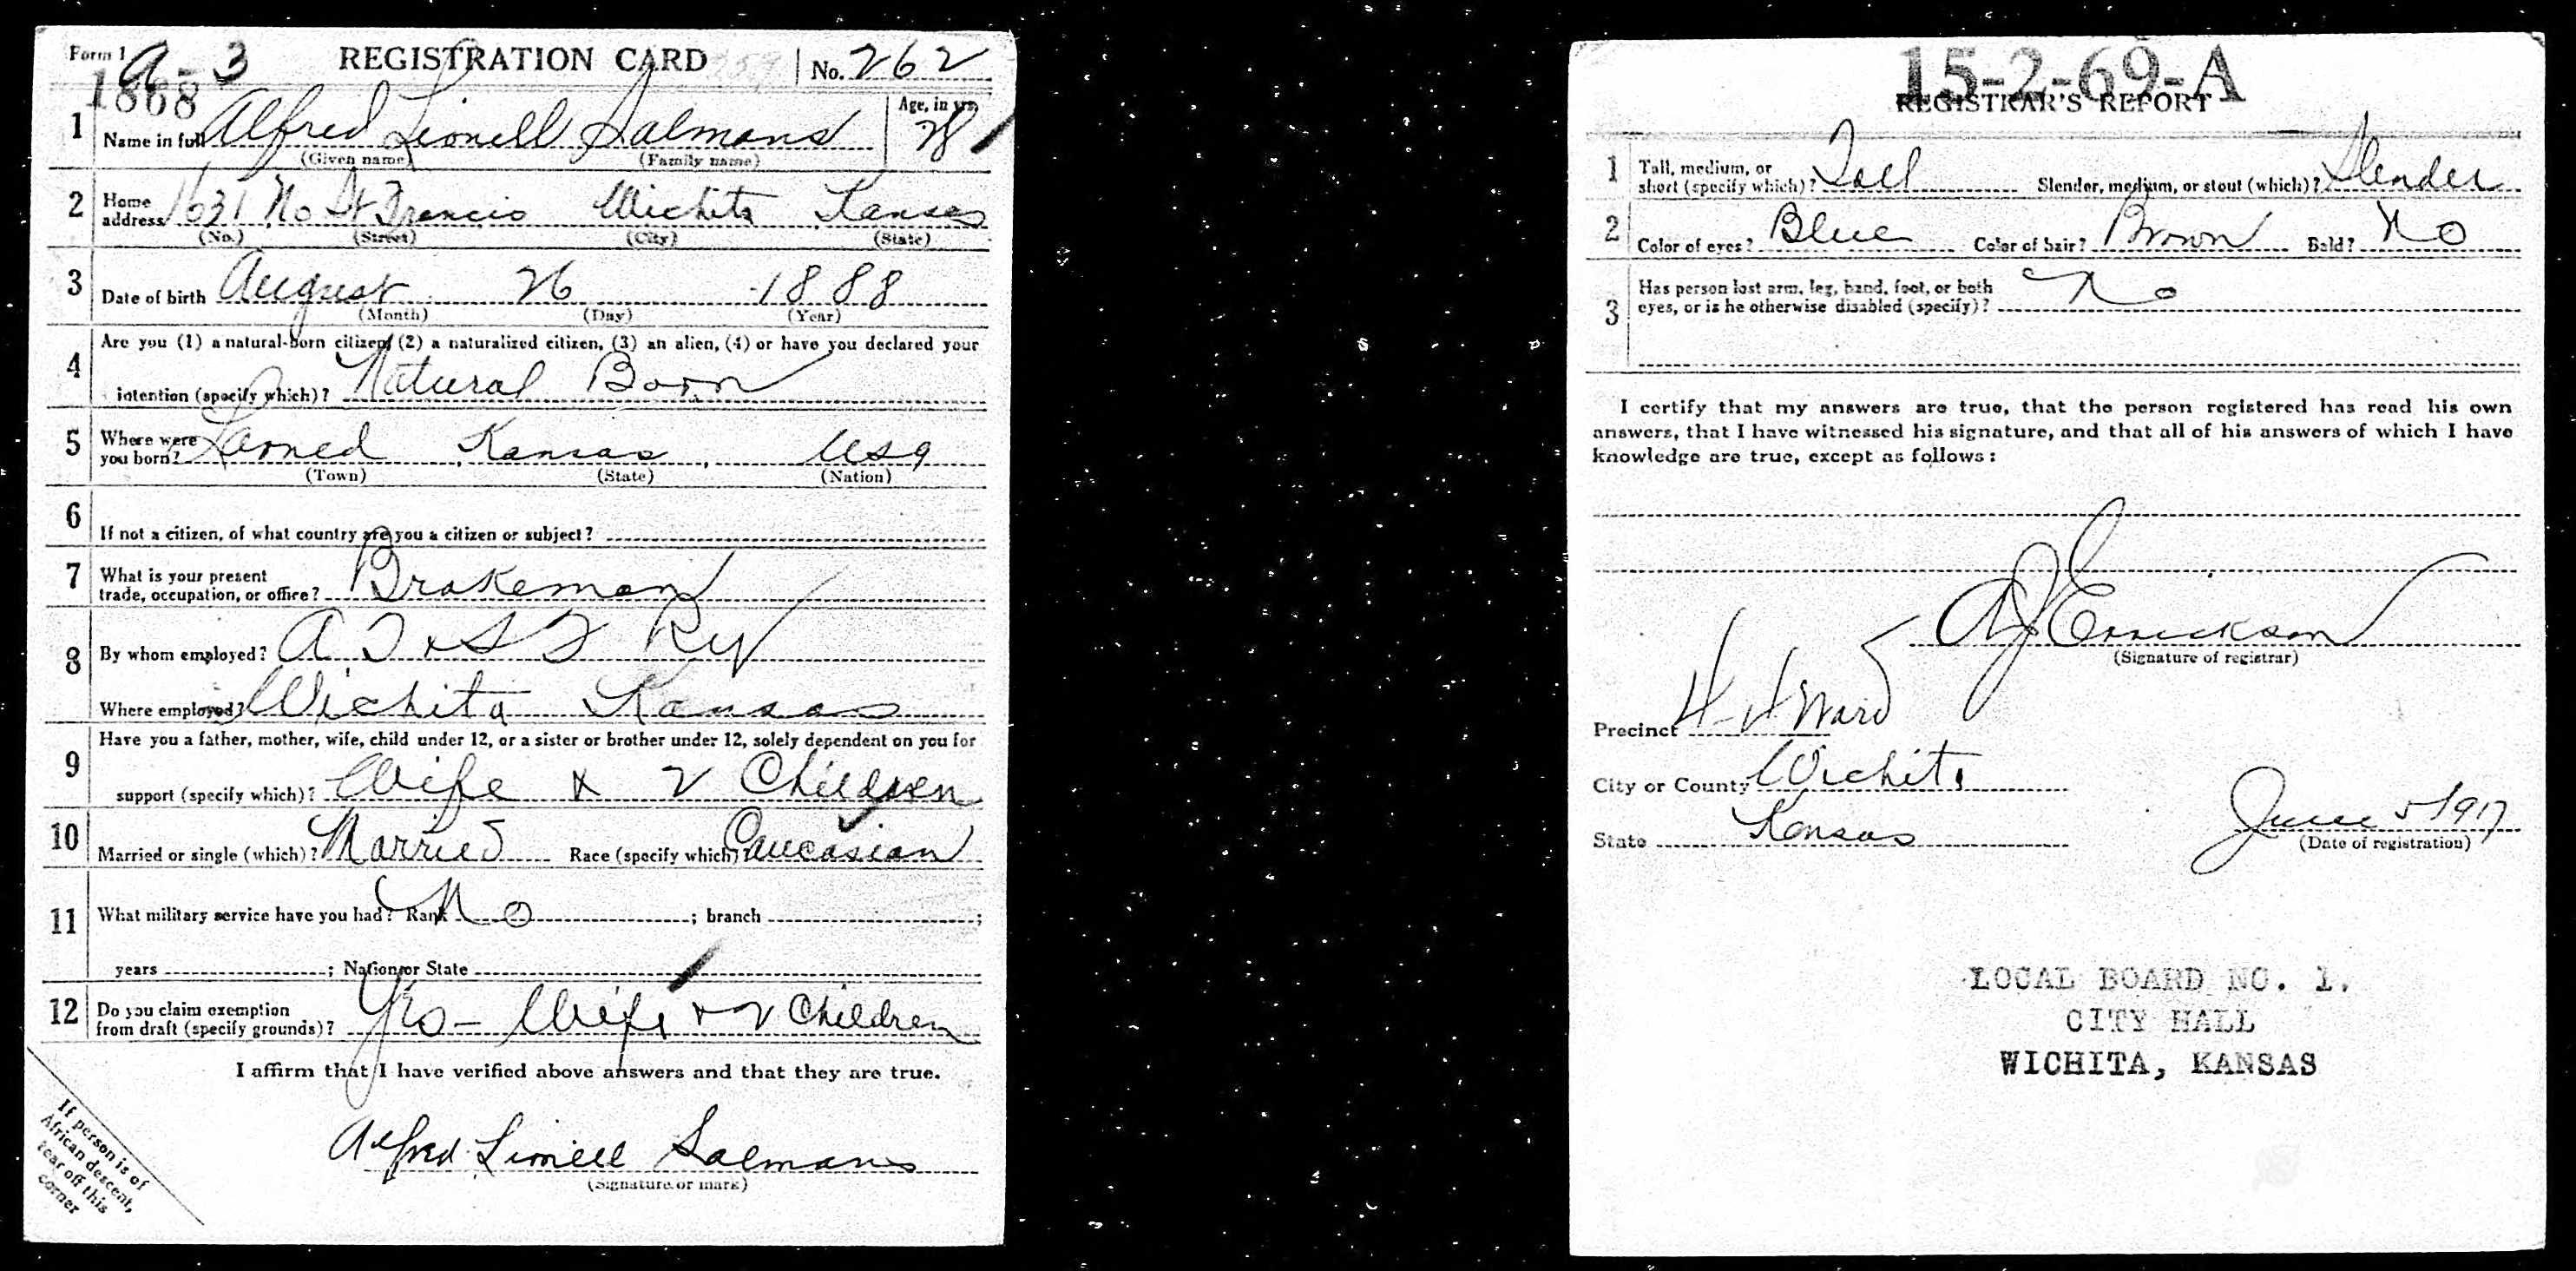 Form 1 a-3 REGISTRATION CARD No. 262
1868
1 Name in full Alfred Lionell Salmans Age, in yrs. 28
(Given name) (Family name)
2 Home address 1631 No St Francis Wichita Kansas
(No.) (Street) (City) (State)
3 Date of birth August 26 1888
(Month) (Day) (Year)
4 Are you (1) a natural-born citizen, (2) a naturalized citizen, (3) an alien, (4) or have you declared your
intention (specify which)? Natural Born
5 Where were you born? Larned Kansas USA
(Town) (State) (Nation)
6 If not a citizen, of what country are you a citizen or subject?
7 What is your present
trade, occupation, or office? Brakeman
8 By whom employed? A T & S F Ry
Where employed? Wichita Kansas
9 Have you a father, mother, wife, child under 12, or a sister or brother under 12, solely dependent on you for
support (specify which)? Wife & 2 Children
10 Married or single (which)? Married Race (specify which)? Caucasian
11 What military service have you had? Rank No ; branch ;
years ; Nation or State
12 Do you claim exemption
from draft (specify grounds)? Yes - Wife & 2 Children
I affirm that I have verified above answers and that they are true.
Alfred Lionell Salmans
(Signature or mark)
If person is of
African descent,
tear off this
corner
15-2-69-A
REGISTRAR'S REPORT
1 Tall, medium, or
short (specify which)? Tall Slender, medium, or stout (which)? Slender
2 Color of eyes? Blue Color of hair? Brown Bald? No
3 Has person lost arm, leg, hand, foot, or both
eyes, or is he otherwise disabled (specify)? No
I certify that my answers are true, that the person registered has read his own
answers, that I have witnessed his signature, and that all of his answers of which I have
knowledge are true, except as follows:
A J Errickson
(Signature of registrar)
Precinct 4-4 Ward
City or County Wichita
State Kansas June 5 1917
(Date of registration)
LOCAL BOARD NO. 1.
CITY HALL
WICHITA, KANSAS